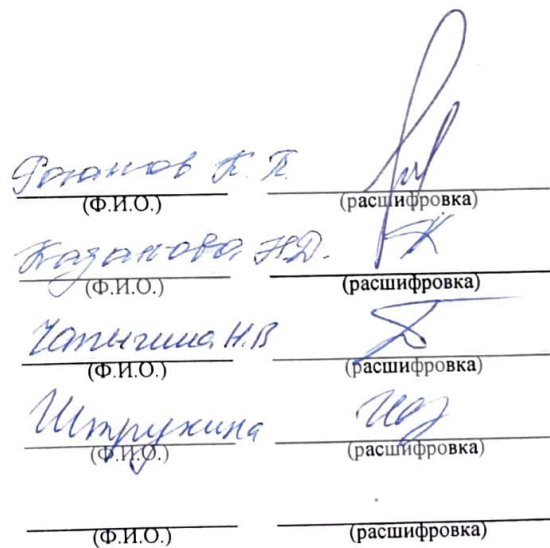 К. П.
(Ф.И.О.) (расшифровка)
Казанова Н.Д.
(Ф.И.О.) (расшифровка)
Чапыгина Н.В
(Ф.И.О.) (расшифровка)
Штрухина
(Ф.И.О.) (расшифровка)
(Ф.И.О.) (расшифровка)